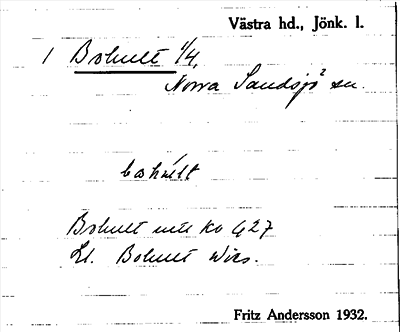 Västra hd., Jönk. l.
1 Bohult 1/4,
Norra Sandsjö sn.
bohúlt
Bohult
Lt. Bohult
Fritz Andersson 1932.